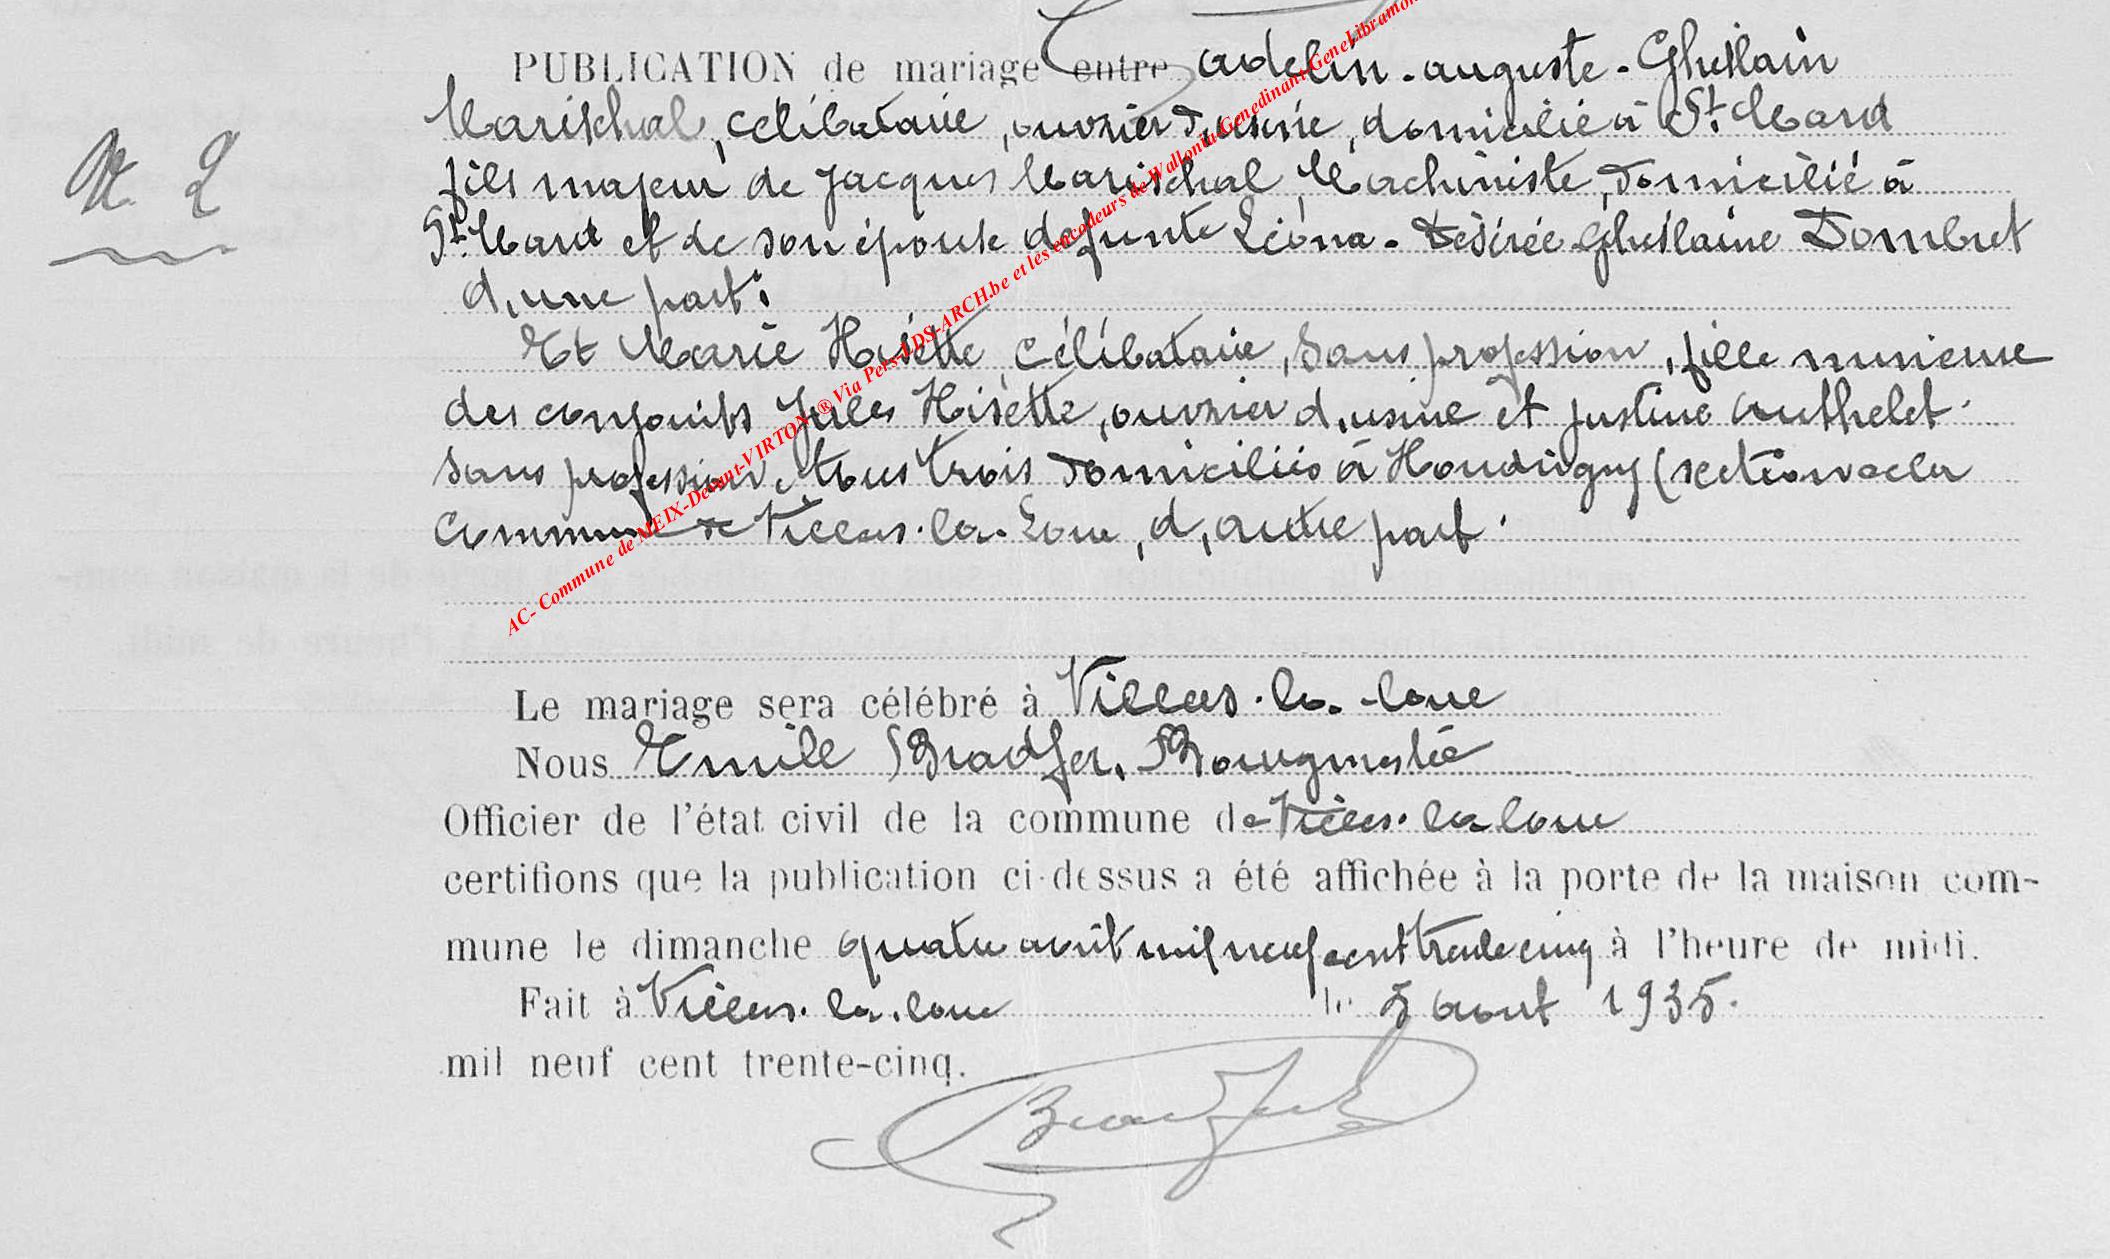 PUBLICATION de mariage entre Adelin-Auguste-Ghislain
Marischal, célibataire, ouvrier d'usine, domicilié à St Mard
N° 2
fils majeur de Jacques Marischal, Machiniste, domicilié à
St Mard et de son épouse défunte Léona-Désirée Ghislaine Dombret
d'une part;
Et Marie Hisette, célibataire, sans profession, fille mineure
des conjoints Jules Hisette, ouvrier d'usine et Justine Authelet
sans profession, tous trois domiciliés à Houdrigny (section de la
commune de Villers-la-Loue, d'autre part.
Le mariage sera célébré à Villers-la-Loue
Nous Emile Bradfer, Bourgmestre
Officier de l'état civil de la commune de Villers-la Loue
certifions que la publication ci-dessus a été affichée à la porte de la maison com-
mune le dimanche quatre août mil neuf cent trente cinq à l'heure de midi.
Fait à Villers-la-Loue le 5 août 1935.
mil neuf cent trente-cinq.
Bradfer
AC- Commune de MEIX-Devant-VIRTON ® Via Pers-LDS-ARCH.be et les encodeurs de Wallonia-Genedinant-GeneLibramon